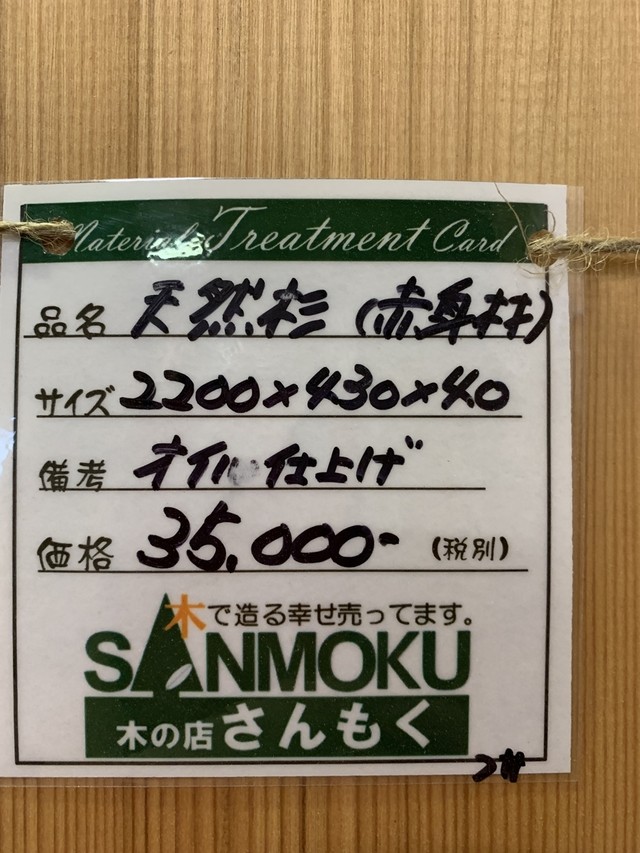 Material Treatment Card
品名 天然杉(赤身材)
サイズ 2200×430×40
備考 オイル仕上げ
価格 35,000- (税別)
木で造る幸せ売ってます。
SANMOKU
木の店 さんもく